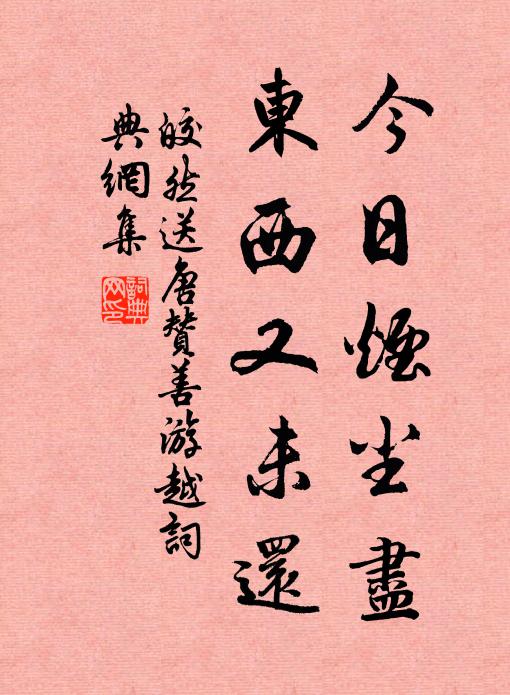 今日煙坐盡
東西又未還
皎然送唐贊善游越詞
典網集
詞典
网印